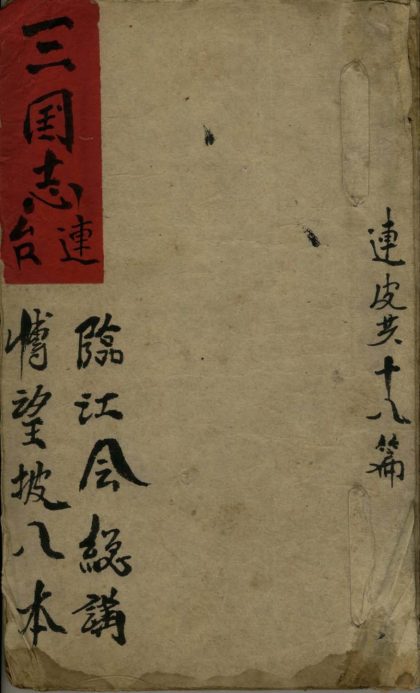 連皮共十八篇
三国志
連台
臨江会総講
博望披八本